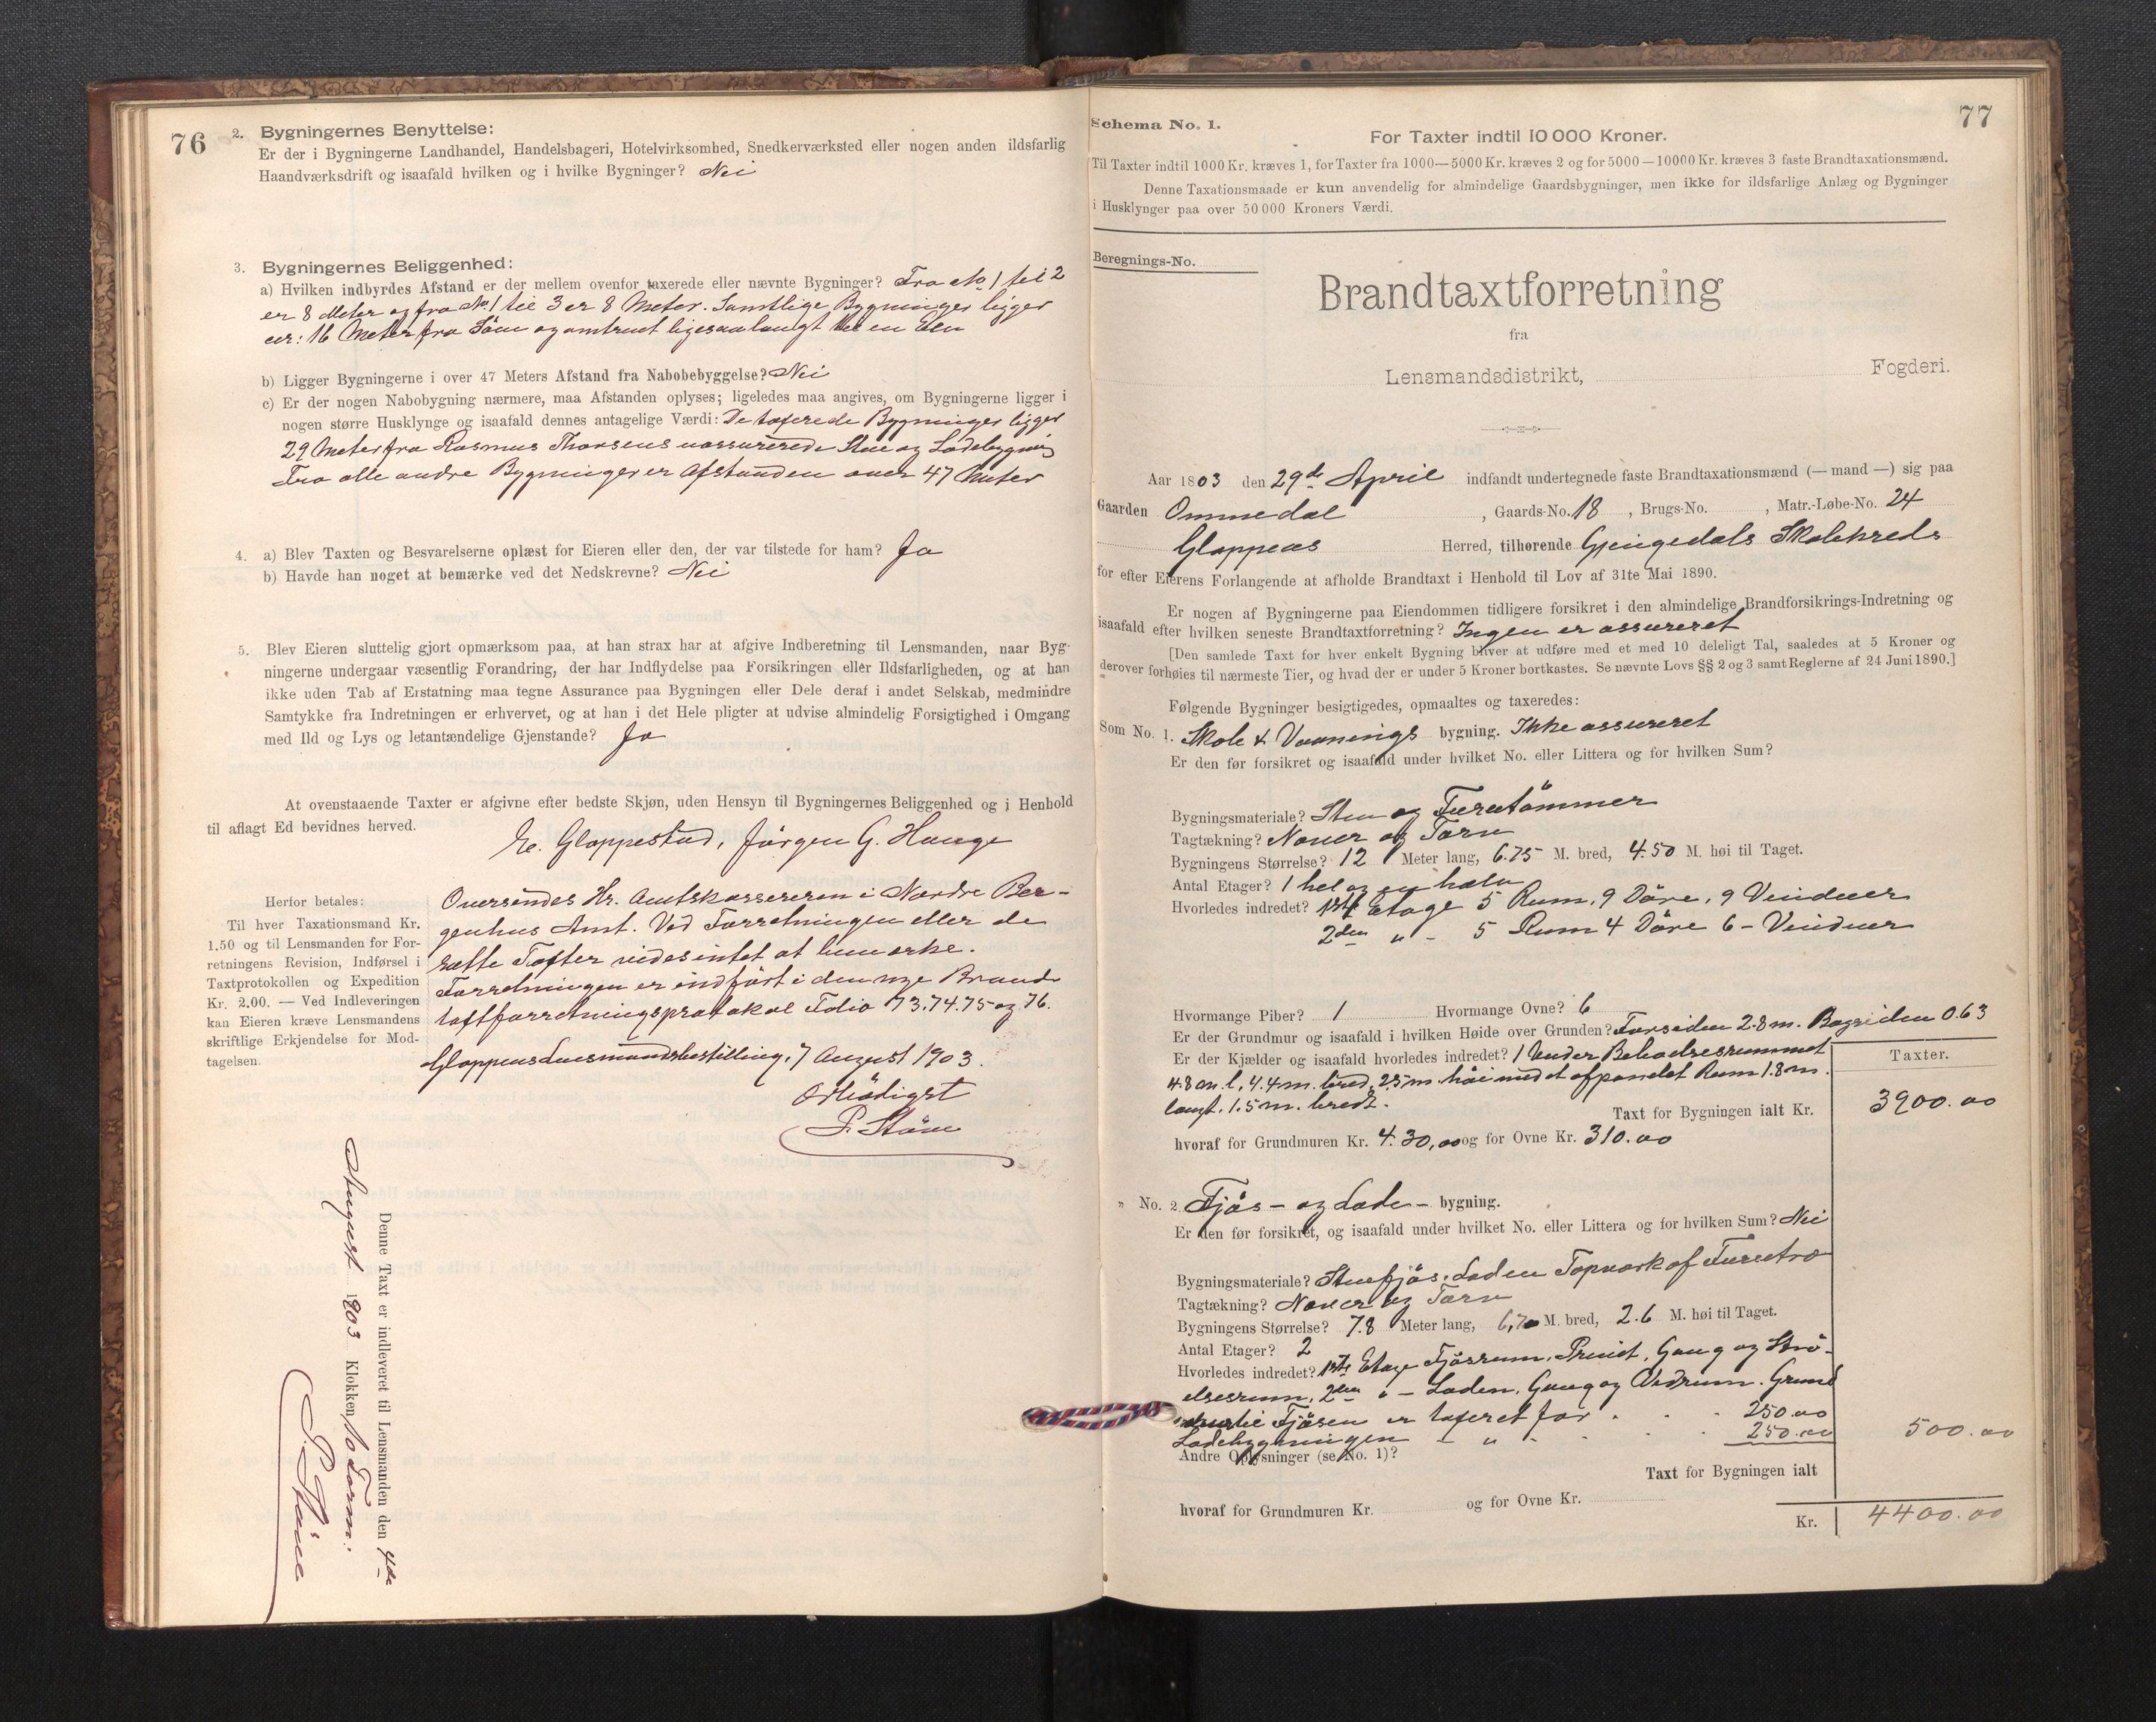 76
2. Bygningernes Benyttelse:
Er der i Bygningerne Landhandel, Handelsbageri, Hotelvirksomhed, Snedkerværksted eller nogen anden ildsfarlig
Haandværksdrift og isaafald hvilken og i hvilke Bygninger? Nei
3. Bygningernes Beliggenhed:
a) Hvilken indbyrdes Afstand er der mellem ovenfor taxerede eller nævnte Bygninger? Fra No 1 til 2
er 8 Meter og fra No 1 til 3 er 8 Meter. Samtlige Bygninger ligger
16 Meter fra og omtrent ligesaa langt en Elv
b) Ligger Bygningerne i over 47 Meters Afstand fra Nabobebyggelse? Nei
c) Er der nogen Nabobygning nærmere, maa Afstanden oplyses; ligeledes maa angives, om Bygningerne ligger i
nogen større Husklynge og isaafald dennes antagelige Værdi: De taxerede Bygninger ligger
29 Meter fra Rasmus Thorsens uassurerede Stue og Ladebygning
Fra alle andre Bygninger er Afstanden over 47 Meter
4. a) Blev Taxten og Besvarelserne oplæst for Eieren eller den, der var tilstede for ham? Ja
b) Havde han noget at bemærke ved det Nedskrevne? Nei
5. Blev Eieren sluttelig gjort opmærksom paa, at han strax har at afgive Indberetning til Lensmanden, naar Byg-
ningerne undergaar væsentlig Forandring, der har Indflydelse paa Forsikringen eller Ildsfarligheden, og at han
ikke uden Tab af Erstatning maa tegne Assurance paa Bygningen eller Dele deraf i andet Selskab, medmindre
Samtykke fra Indretningen er erhvervet, og at han i det Hele pligter at udvise almindelig Forsigtighed i Omgang
med Ild og Lys og letantændelige Gjenstande? Ja
At ovenstaaende Taxter er afgivne efter bedste Skjøn, uden Hensyn til Bygningernes Beliggenhed og i Henhold
til aflagt Ed bevidnes herved.
E. Gloppestad, Jörgen G. Hauge
Herfor betales:
Til hver Taxationsmand Kr.
1.50 og til Lensmanden for For-
retningens Revision, Indførsel i
Taxtprotokollen og Expedition
Kr. 2.00. — Ved Indleveringen
kan Eieren kræve Lensmandens
skriftlige Erkjendelse for Mod-
tagelsen.
Oversendes Hr. Amtskassereren i Nordre Ber-
genhus Amt. Ved Forretningen eller de
satte Taxter vides intet at bemærke.
Forretningen er indført i den nye Brand-
taxtforretningsprotokol Folio 73.74.75 og 76.
Gloppens Lensmandsbestilling, 7 August 1903.
Ærbödigst
P. Støve
Denne Taxt er indleveret til Lensmanden den 4de
August 1903 Klokken 10 Form.
P. Støve
77
Schema No. 1.
For Taxter indtil 10 000 Kroner.
Til Taxter indtil 1000 Kr. kræves 1, for Taxter fra 1000—5000 Kr. kræves 2 og for 5000—10000 Kr. kræves 3 faste Brandtaxationsmænd.
Denne Taxationsmaade er kun anvendelig for almindelige Gaardsbygninger, men ikke for ildsfarlige Anlæg og Bygninger
i Husklynger paa over 50 000 Kroners Værdi.
Beregnings-No.
Brandtaxtforretning
fra
Lensmandsdistrikt, Fogderi.
Aar 1803 den 29de April indfandt undertegnede faste Brandtaxationsmænd (— mand —) sig paa
Gaarden Ommedal, Gaards-No. 18, Brugs-No. , Matr.-Løbe-No. 24
Gloppens Herred, tilhørende Gjengedals Skolekreds
for efter Eierens Forlangende at afholde Brandtaxt i Henhold til Lov af 31te Mai 1890.
Er nogen af Bygningerne paa Eiendommen tidligere forsikret i den almindelige Brandforsikrings-Indretning og
isaafald efter hvilken seneste Brandtaxtforretning? Ingen er assureret
[Den samlede Taxt for hver enkelt Bygning bliver at udføre med et med 10 deleligt Tal, saaledes at 5 Kroner og
derover forhøies til nærmeste Tier, og hvad der er under 5 Kroner bortkastes. Se nævnte Lovs §§ 2 og 3 samt Reglerne af 24 Juni 1890.]
Følgende Bygninger besigtigedes, opmaaltes og taxeredes:
Som No. 1. Skole & Vaanings bygning. Ikke assureret
Er den før forsikret og isaafald under hvilket No. eller Littera og for hvilken Sum?
Bygningsmateriale? Sten og Furutömmer
Tagtækning? Næver og Torv
Bygningens Størrelse? 12 Meter lang, 6.75 M. bred, 4.50 M. høi til Taget.
Antal Etager? 1 hel og en halv
Hvorledes indredet? 1ste Etage 5 Rum, 9 Döre, 9 Vinduer
2den " - 5 Rum 4 Döre 6 - Vinduer
Hvormange Piber? 1 Hvormange Ovne? 6
Er der Grundmur og isaafald i hvilken Høide over Grunden? Forsiden 2.8 m. Bagsiden 0.63
Er der Kjælder og isaafald hvorledes indredet? 1 under Beboelsesrummet
4.8 m. l, 4.4 m. bred, 2.5 m. höi med et afpanelet Rum 1.8 m.
langt, 1.5 m. bredt.
Taxter.
Taxt for Bygningen ialt Kr. 3900.00
hvoraf for Grundmuren Kr. 430,00 og for Ovne Kr. 310.00
" No. 2. Fjös- og Lade- bygning.
Er den før forsikret, og isaafald under hvilket No. eller Littera og for hvilken Sum? Nei
Bygningsmateriale? Stenfjös. Laden Topværk af Furutræ
Tagtækning? Næver og Torv
Bygningens Størrelse? 7.8 Meter lang, 6,70 M. bred, 2.6 M. høi til Taget.
Antal Etager? 2
Hvorledes indredet? 1ste Etage Fjösrum, Privet, Gang og Strö-
elsesrum, 2den " - Laden, Gang og Vedrum. Grund
muren til Fjösen er taxeret for . . . 250.00
Ladebygningen - " - . . . 250.00
500.00
Andre Oplysninger (se No. 1)?
Taxt for Bygningen ialt
hvoraf for Grundmuren Kr. og for Ovne Kr.
Kr. 4400.00